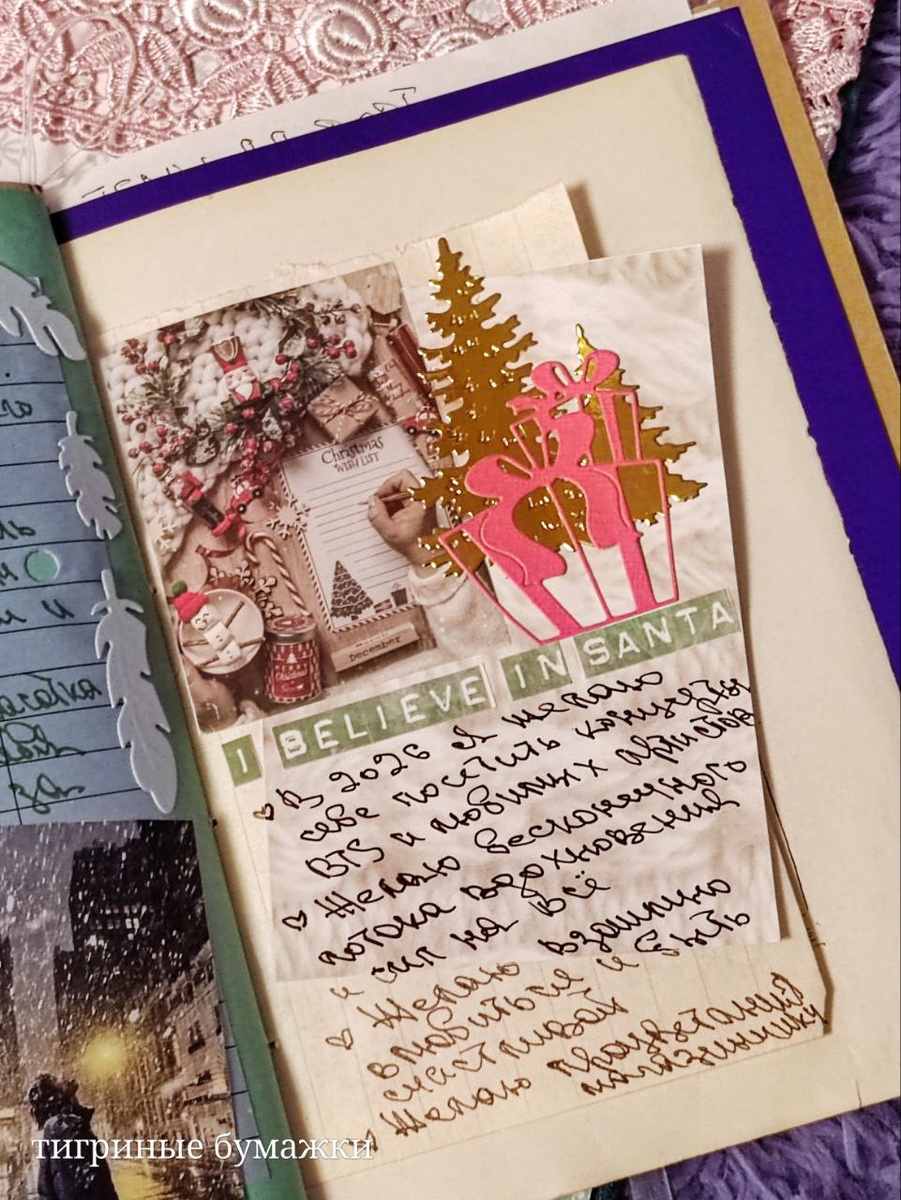 Christmas
WISH LIST
December
I BELIEVE IN SANTA
В 2026 я желаю
себе посетить концерты
BTS и любимых артистов
Желаю бесконечного
потока вдохновения
и сил на всё
Желаю взаимно
влюбиться и быть
счастливой
Желаю процветания
магазинчику
за
тигриные бумажки